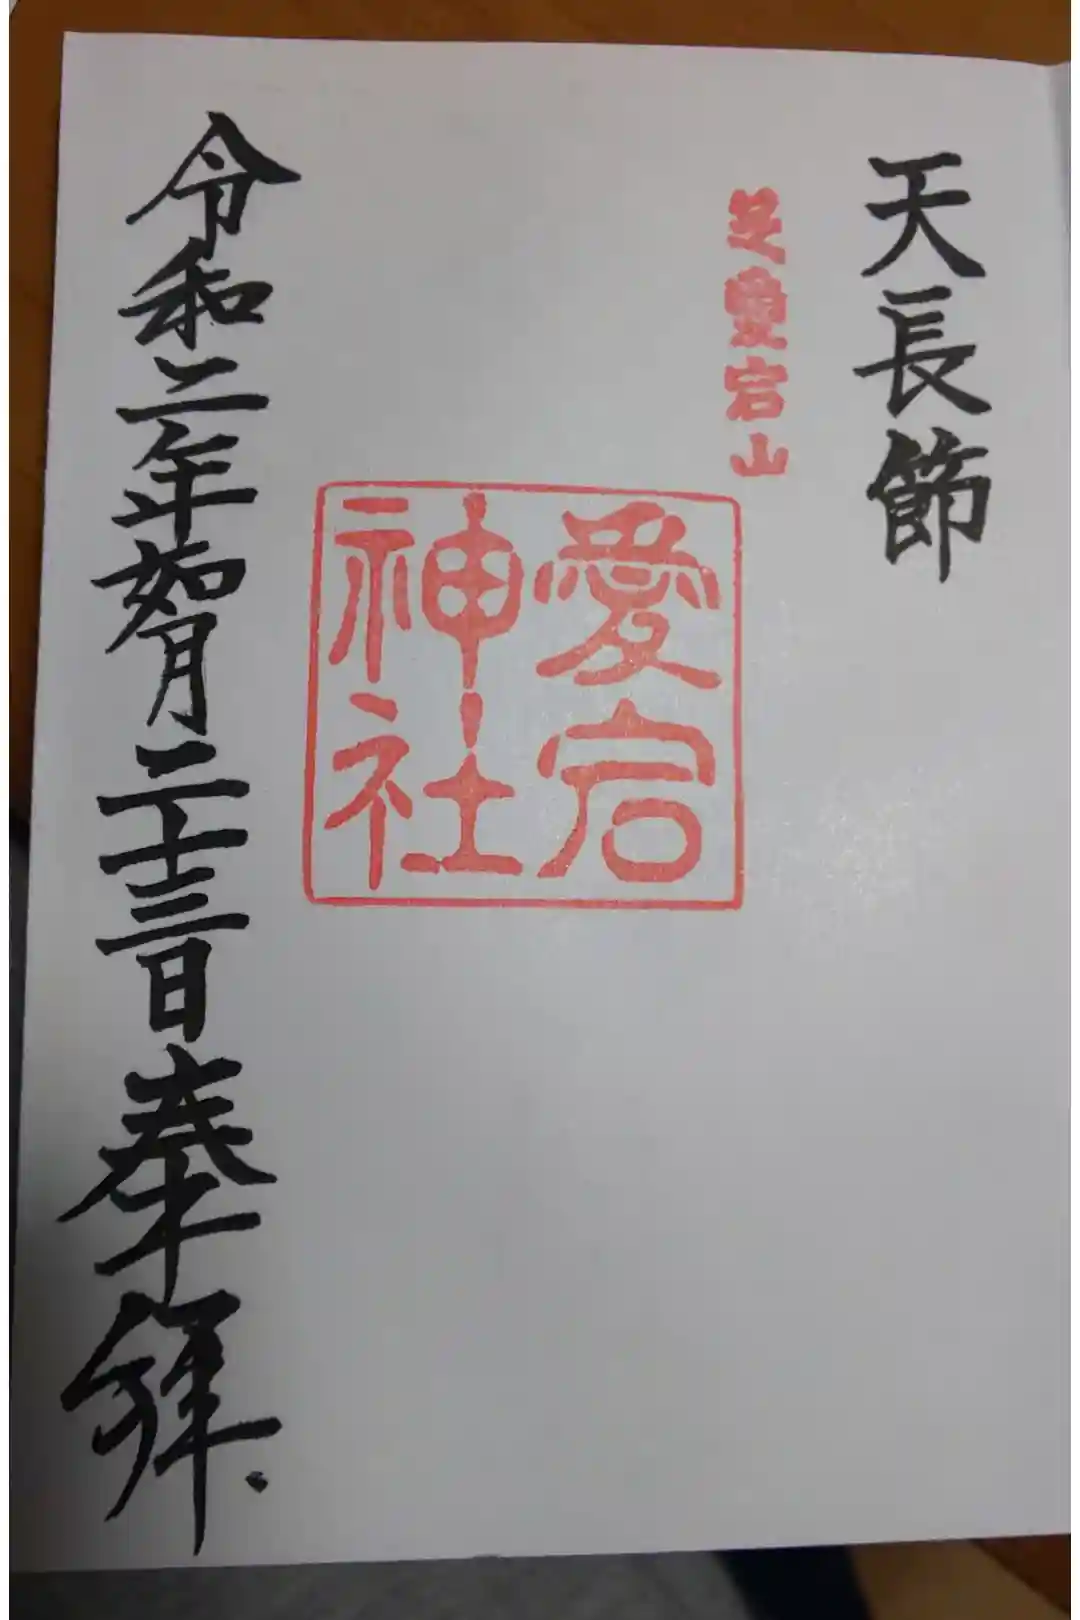 天長節
芝愛宕山
愛宕
神社
令和二年如月二十三日奉拝